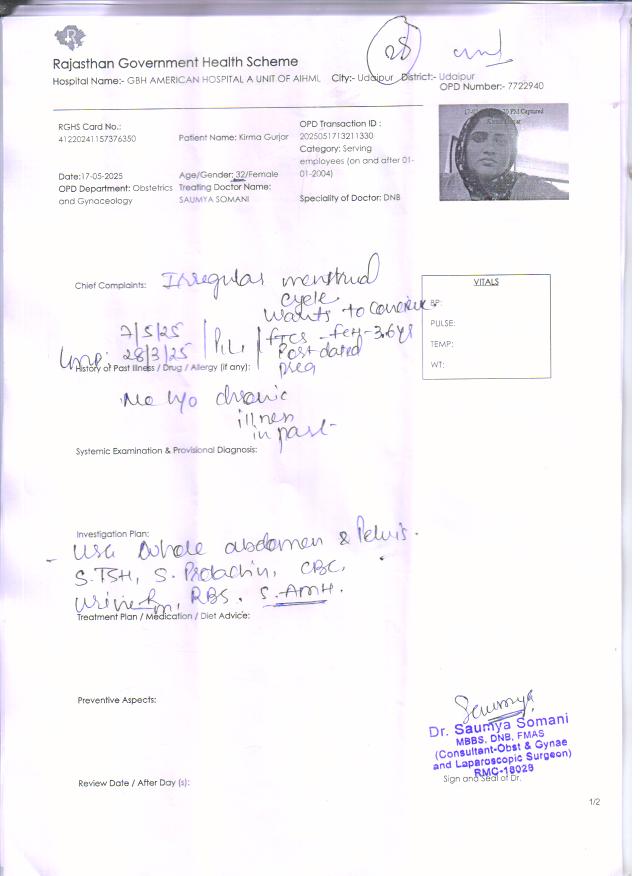 28
Rajasthan Government Health Scheme
Hospital Name:- GBH AMERICAN HOSPITAL A UNIT OF AIHML City:- Udaipur District:- Udaipur
OPD Number:- 7722940
RGHS Card No.:
41220241157376350
Patient Name: Kirma Gurjar
OPD Transaction ID :
2025051713211330
Category: Serving
employees (on and after 01-
01-2004)
PM Captured
Date:17-05-2025
Age/Gender: 32/Female
OPD Department: Obstetrics
and Gynaceology
Treating Doctor Name:
SAUMYA SOMANI
Speciality of Doctor: DNB
Chief Complaints: Irregular menstrual
cycle
wants to conceive
7/5/25
LMP: 28/3/25
P1L1
FTCS - FCH - 3.6 yr
Post dated
preg
VITALS
BP:
PULSE:
TEMP:
WT:
History of Past Illness / Drug / Allergy (if any):
No h/o chronic
illness
in past
Systemic Examination & Provisional Diagnosis:
Investigation Plan:
- USG Whole abdomen & Pelvis.
S.TSH, S. Prolactin, CBC,
Urine R/m, RBS. S.AMH.
Treatment Plan / Medication / Diet Advice:
Preventive Aspects:
Saumya
Dr. Saumya Somani
MBBS, DNB, FMAS
(Consultant-Obst & Gynae
and Laparoscopic Surgeon)
RMC-18029
Sign and Seal of Dr.
Review Date / After Day (s):
1/2